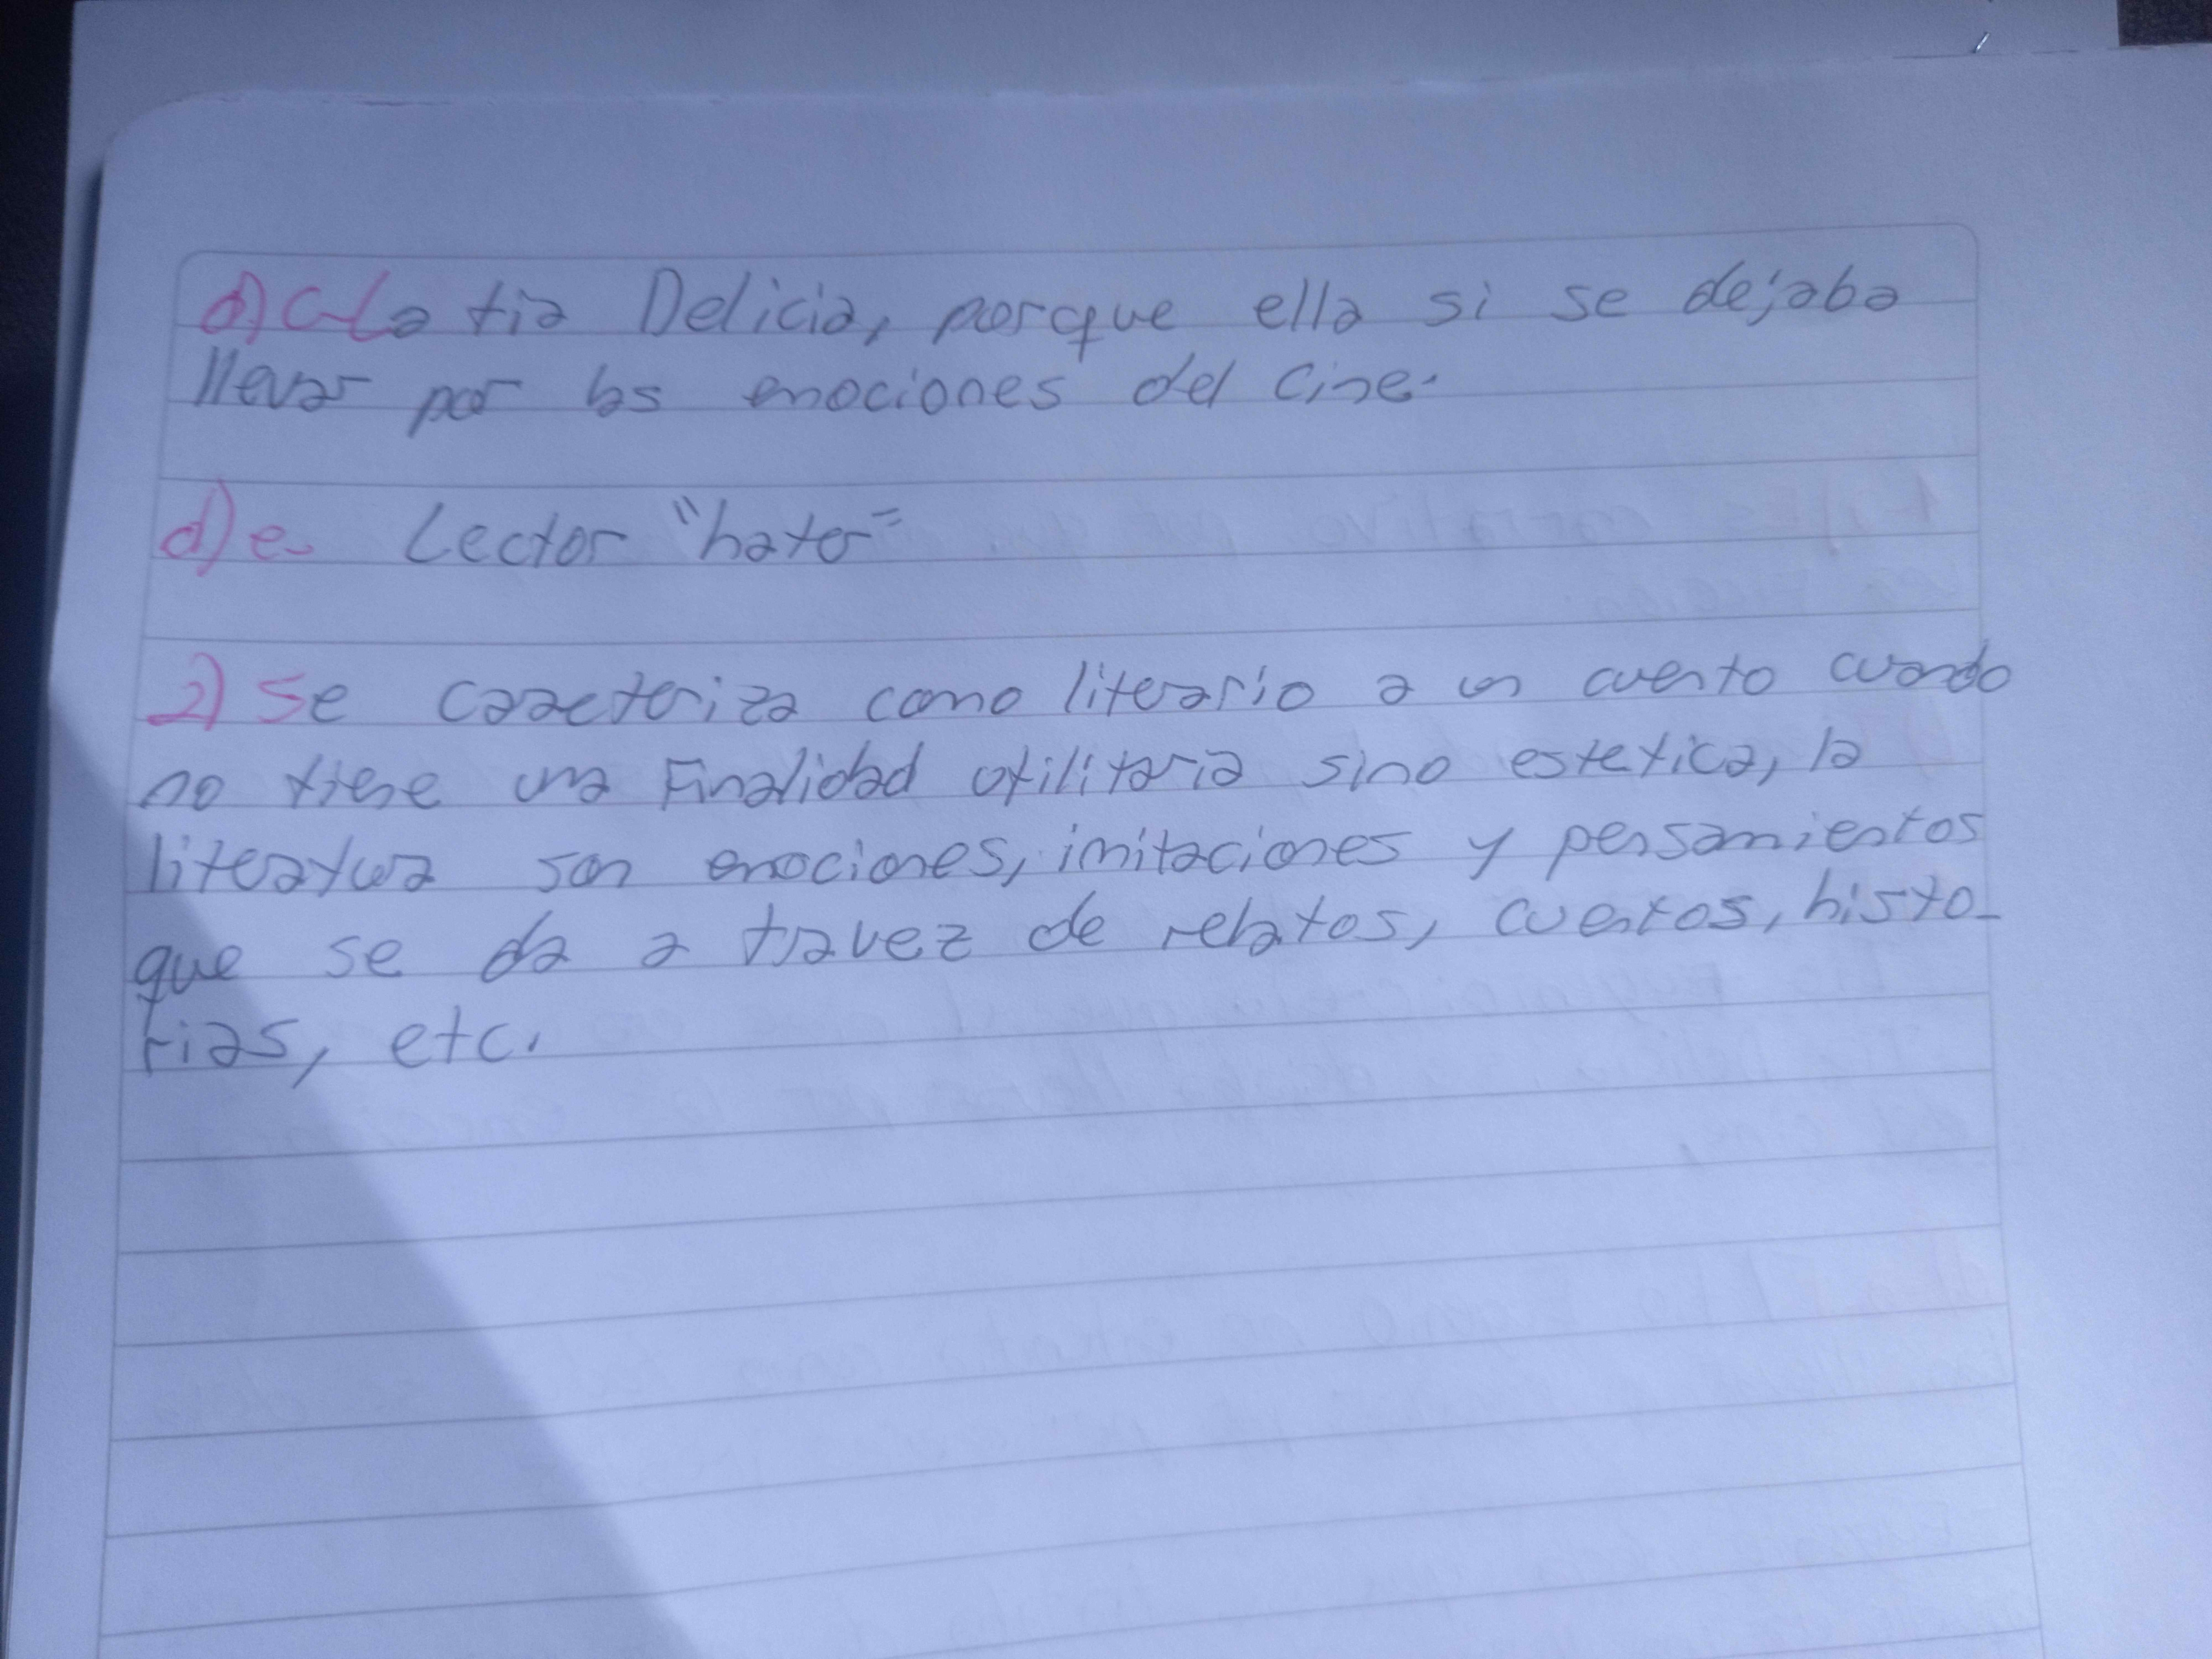 d) c- La tia Delicia, porque ella si se dejaba
llevar por las emociones del cine.
d) e- Lector "hater"
2) Se caracteriza como literario a un cuento cuando
no tiene una Finalidad utilitaria sino estetica, la
literatura son emociones, imitaciones y pensamientos
que se da a travez de relatos, cuentos, histo-
rias, etc.